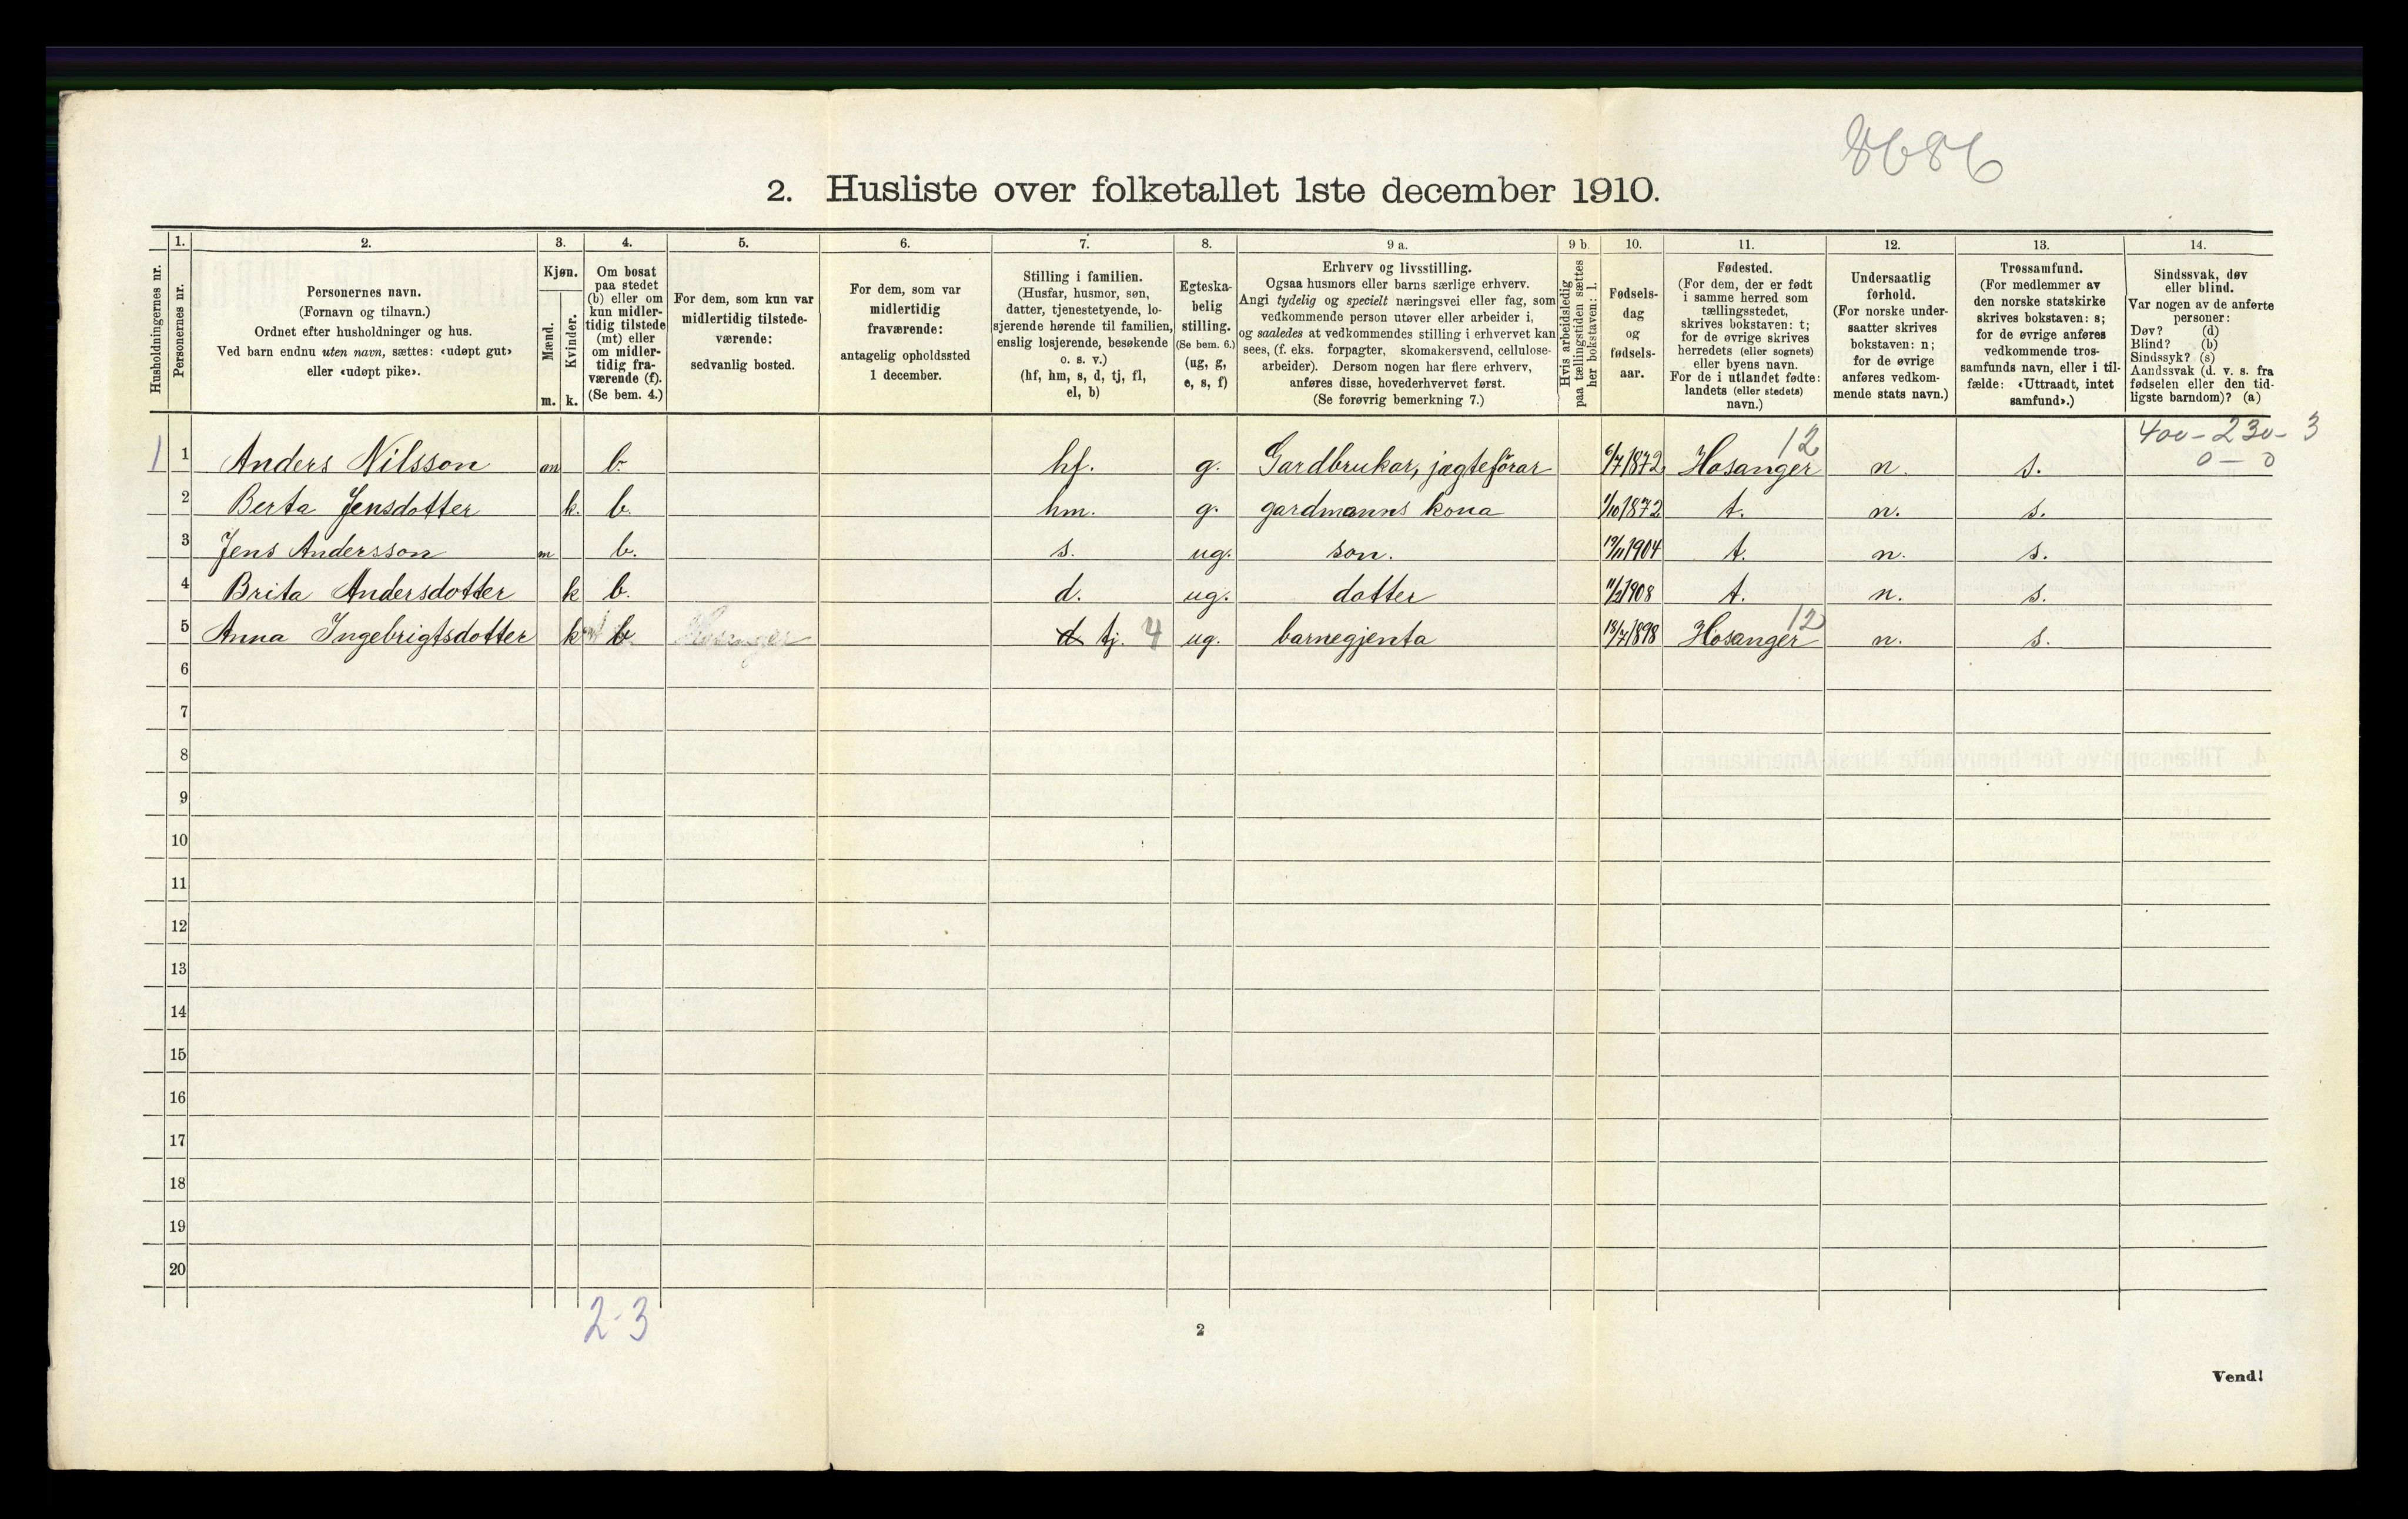 8686
2. Husliste over folketallet 1ste december 1910.
1. 2. 3. 4. 5. 6. 7. 8. 9 a. 9 b. 10. 11. 12. 13. 14.
Husholdningernes nr.
Personernes nr.
Personernes navn.
(Fornavn og tilnavn.)
Ordnet efter husholdninger og hus.
Ved barn endnu uten navn, sættes: «udøpt gut»
eller «udøpt pike».
Kjøn.
Mænd.
Kvinder.
m. k.
Om bosat
paa stedet
(b) eller om
kun midler-
tidig tilstede
(mt) eller
om midler-
tidig fra-
værende (f).
(Se bem. 4.)
For dem, som kun var
midlertidig tilstede-
værende:
sedvanlig bosted.
For dem, som var
midlertidig
fraværende:
antagelig opholdssted
1 december.
Stilling i familien.
(Husfar, husmor, søn,
datter, tjenestetyende, lo-
sjerende hørende til familien,
enslig losjerende, besøkende
o. s. v.)
(hf, hm, s, d, tj, fl,
el, b)
Egteska-
belig
stilling.
(Se bem. 6.)
(ug, g,
e, s, f)
Erhverv og livsstilling.
Ogsaa husmors eller barns særlige erhverv.
Angi tydelig og specielt næringsvei eller fag, som
vedkommende person utøver eller arbeider i,
og saaledes at vedkommendes stilling i erhvervet kan
sees, (f. eks. forpagter, skomakersvend, cellulose-
arbeider). Dersom nogen har flere erhverv,
anføres disse, hovederhvervet først.
(Se forøvrig bemerkning 7.)
Hvis arbeidsledig
paa tællingstiden sættes
her bokstaven: l.
Fødsels-
dag
og
fødsels-
aar.
Fødested.
(For dem, der er født
i samme herred som
tællingsstedet,
skrives bokstaven: t;
for de øvrige skrives
herredets (eller sognets)
eller byens navn.
For de i utlandet fødte:
landets (eller stedets)
navn.)
Undersaatlig
forhold.
(For norske under-
saatter skrives
bokstaven: n;
for de øvrige
anføres vedkom-
mende stats navn.)
Trossamfund.
(For medlemmer av
den norske statskirke
skrives bokstaven: s;
for de øvrige anføres
vedkommende tros-
samfunds navn, eller i til-
fælde: «Uttraadt, intet
samfund».)
Sindssvak, døv
eller blind.
Var nogen av de anførte
personer:
Døv? (d)
Blind? (b)
Sindssyk? (s)
Aandssvak (d. v. s. fra
fødselen eller den tid-
ligste barndom)? (a)
400 - 230 - 3
0 - 0
1 1 Anders Nilsson m b. hf. g. Gardbrukar, jægteförar 6/7 1872 Hosanger 12 n. s.
2 Berta Jensdotter k. b. hm. g. gardmanns kona 1/10 1872 t. n. s.
3 Jens Andersson m b. s. ug. son. 19/11 1904 t. n. s.
4 Brita Andersdotter k b. d. ug. dotter 11/2 1908 t. n. s.
5 Anna Ingebrigtsdotter k b Hosanger d tj. 4 ug. barnegjenta 18/7 1898 Hosanger 12 n. s.
6
7
8
9
10
11
12
13
14
15
16
17
18
19
20
2-3
2
Vend!